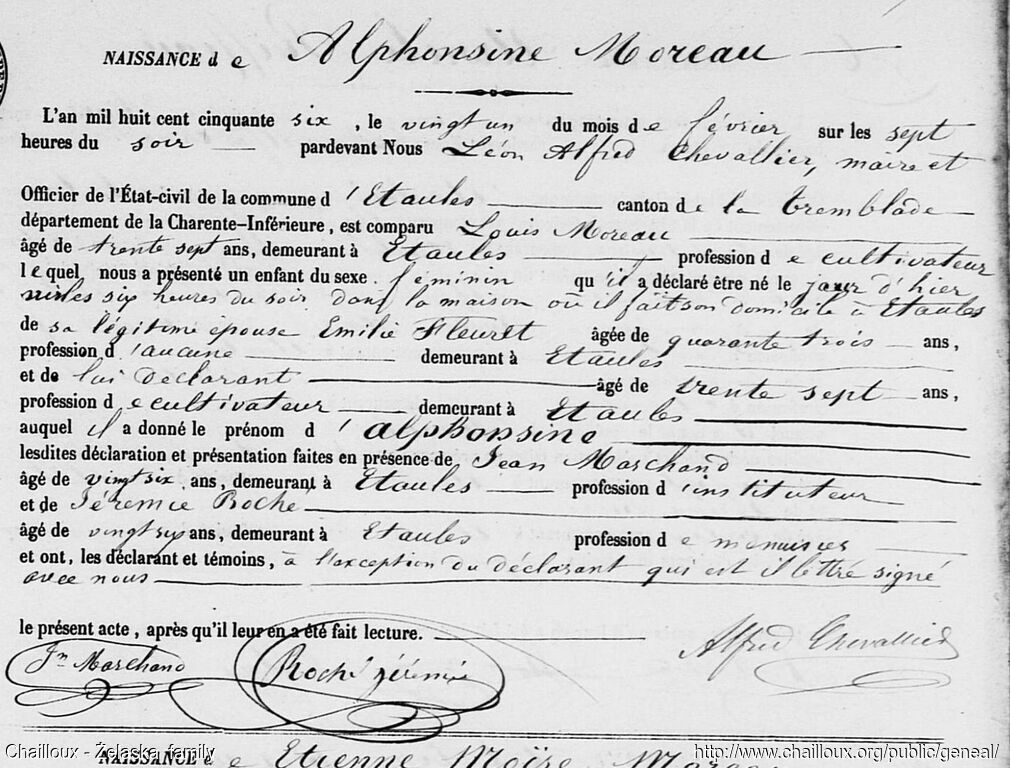 NAISSANCE de Alphonsine Moreau
L'an mil huit cent cinquante six, le vingt un du mois de février sur les sept
heures du soir pardevant Nous Léon Alfred Chevallier, maire et
Officier de l'État-civil de la commune d'Etaules canton de la Tremblade
département de la Charente-Inférieure, est comparu Louis Moreau
âgé de trente sept ans, demeurant à Etaules profession de cultivateur
lequel nous a présenté un enfant du sexe féminin qu'il a déclaré être né le jour d'hier
sur les six heures du soir dans la maison où il fait son domicile à Etaules
de sa légitime épouse Emilie Fleuret âgée de quarante trois ans,
profession d'aucune demeurant à Etaules
et de lui déclarant âgé de trente sept ans,
profession de cultivateur demeurant à Etaules
auquel il a donné le prénom d'alphonsine
lesdites déclaration et présentation faites en présence de Jean Marchand
âgé de vingt six ans, demeurant à Etaules profession d'instituteur
et de Jéremie Roché
âgé de vingt six ans, demeurant à Etaules profession de menuisier
et ont, les déclarant et témoins, à l'exception du déclarant qui est illettré signé
avec nous
le présent acte, après qu'il leur en a été fait lecture.
Jn Marchand Roché jérémie Alfred Chevallier
NAISSANCE de Etienne Moïse
Chailloux - Želaska family http://www.chailloux.org/public/geneal/